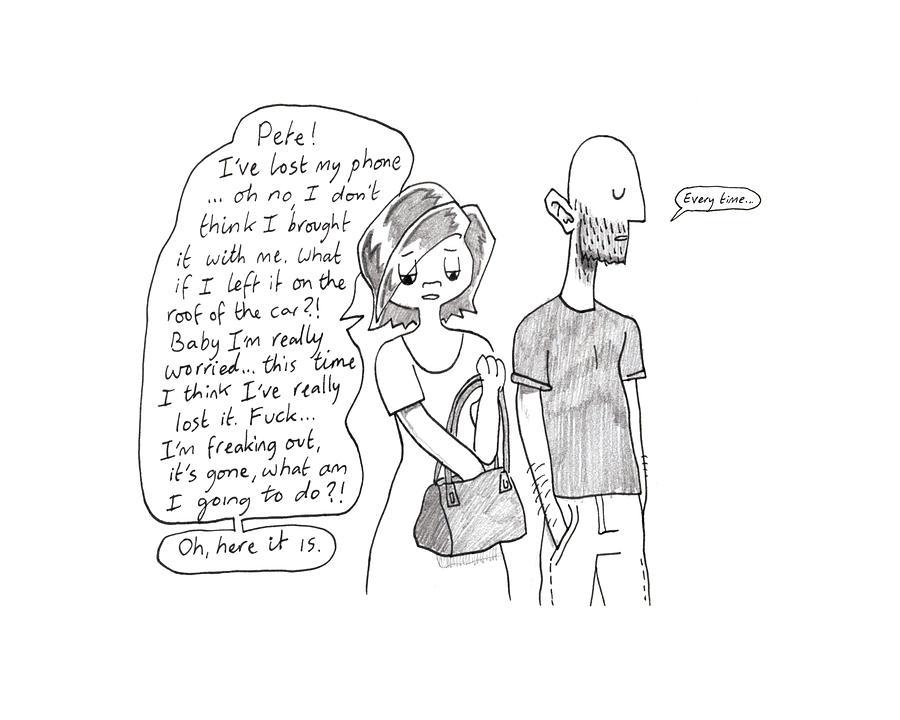 Pete!
I've lost my phone
... oh no, I don't
think I brought
it with me. What
if I left it on the
roof of the car?!
Baby I'm really
worried... this time
I think I've really
lost it. Fuck...
I'm freaking out,
it's gone, what am
I going to do?!
Oh, here it is.
Every time...